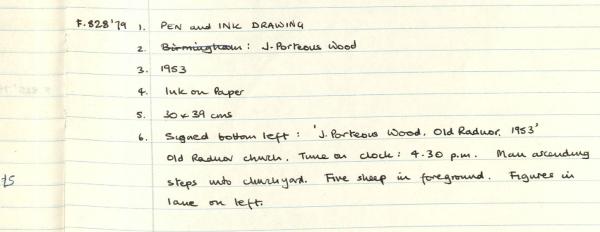 F.828'79 1. PEN and INK DRAWING
2. Birmingham: J. Porteous Wood
3. 1953
4. Ink on Paper
5. 30 x 39 cms
6. Signed bottom left: 'J. Porteous Wood. Old Radnor. 1953'
Old Radnor church. Time on clock: 4.30 p.m. Man ascending
steps into churchyard. Five sheep in foreground. Figures in
lane on left.